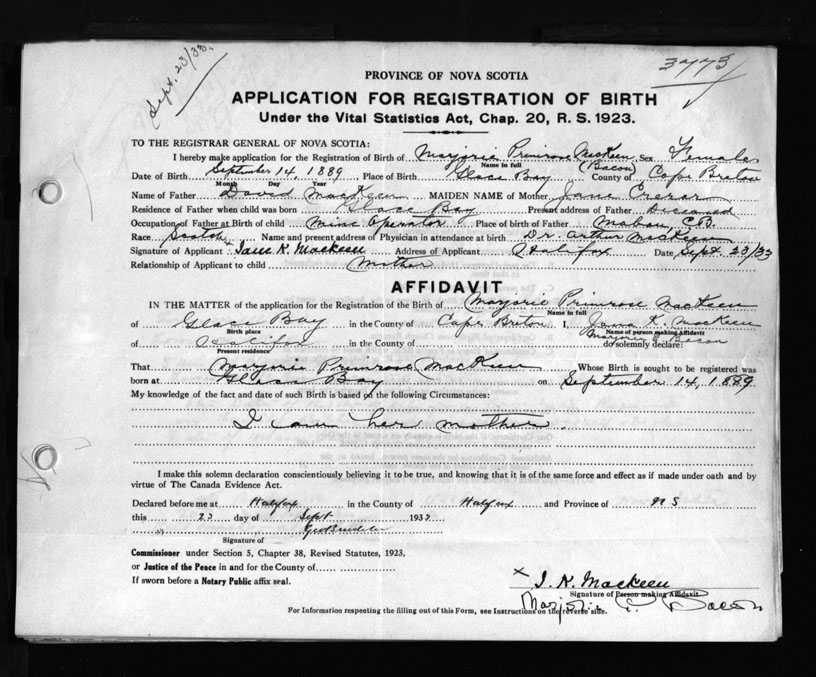 Sept. 23/33.
3773
PROVINCE OF NOVA SCOTIA
APPLICATION FOR REGISTRATION OF BIRTH
Under the Vital Statistics Act, Chap. 20, R. S. 1923.
TO THE REGISTRAR GENERAL OF NOVA SCOTIA:
I hereby make application for the Registration of Birth of Marjorie Primrose MacKeen Sex Female
Name in full
(Bacon)
Date of Birth September 14, 1889 Place of Birth Glace Bay County of Cape Breton
Month Day Year
Name of Father David MacKeen MAIDEN NAME of Mother Jane Crerar
Residence of Father when child was born Glace Bay Present address of Father Deceased
Occupation of Father at Birth of child mine operator Place of birth of Father Mabou C.B.
Race Scotch Name and present address of Physician in attendance at birth Dr. Arthur MacKeen
Signature of Applicant Jane K. MacKeen Address of Applicant Halifax Date Sept. 23/33
Relationship of Applicant to child mother
AFFIDAVIT
IN THE MATTER of the application for the Registration of the Birth of Marjorie Primrose MacKeen
Name in full
of Glace Bay in the County of Cape Breton I, Jane K. MacKeen
Birth place Name of person making Affidavit
of Halifax Marjorie P. Bacon do solemnly declare:
Present residence
That Marjorie Primrose MacKeen Whose Birth is sought to be registered was
born at Glace Bay on September 14, 1889
My knowledge of the fact and date of such Birth is based on the following Circumstances:
I am her mother.
I make this solemn declaration conscientiously believing it to be true, and knowing that it is of the same force and effect as if made under oath and by
virtue of The Canada Evidence Act.
Declared before me at Halifax in the County of Halifax and Province of N S
this 23 day of Sept 1933
Signature of
Commissioner under Section 5, Chapter 38, Revised Statutes, 1923,
or Justice of the Peace in and for the County of
If sworn before a Notary Public affix seal.
x J. K. MacKeen
Signature of Person making Affidavit
Marjorie P. Bacon
For Information respecting the filling out of this Form, see Instructions on the reverse side.